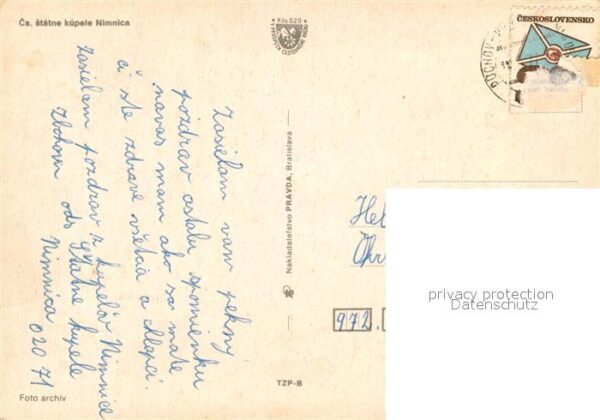 Čs. štátne kúpele Nimnica
Kčs 0,20
ČESKOSLOVENSKO
PÚCHOV
Zasielam vam pekný
pozdrav ostalu spomienku
navas mam ako sa mate
či ste zdrave všetci a chlapci.
Zasielam pozdrav z kupelov Nimnice
Zbohom ods Štatne kupele
Nimnica
020 71
Nakladateľstvo PRAVDA, Bratislava
Hel
972.
privacy protection
Datenschutz
TZP-B
Foto archív